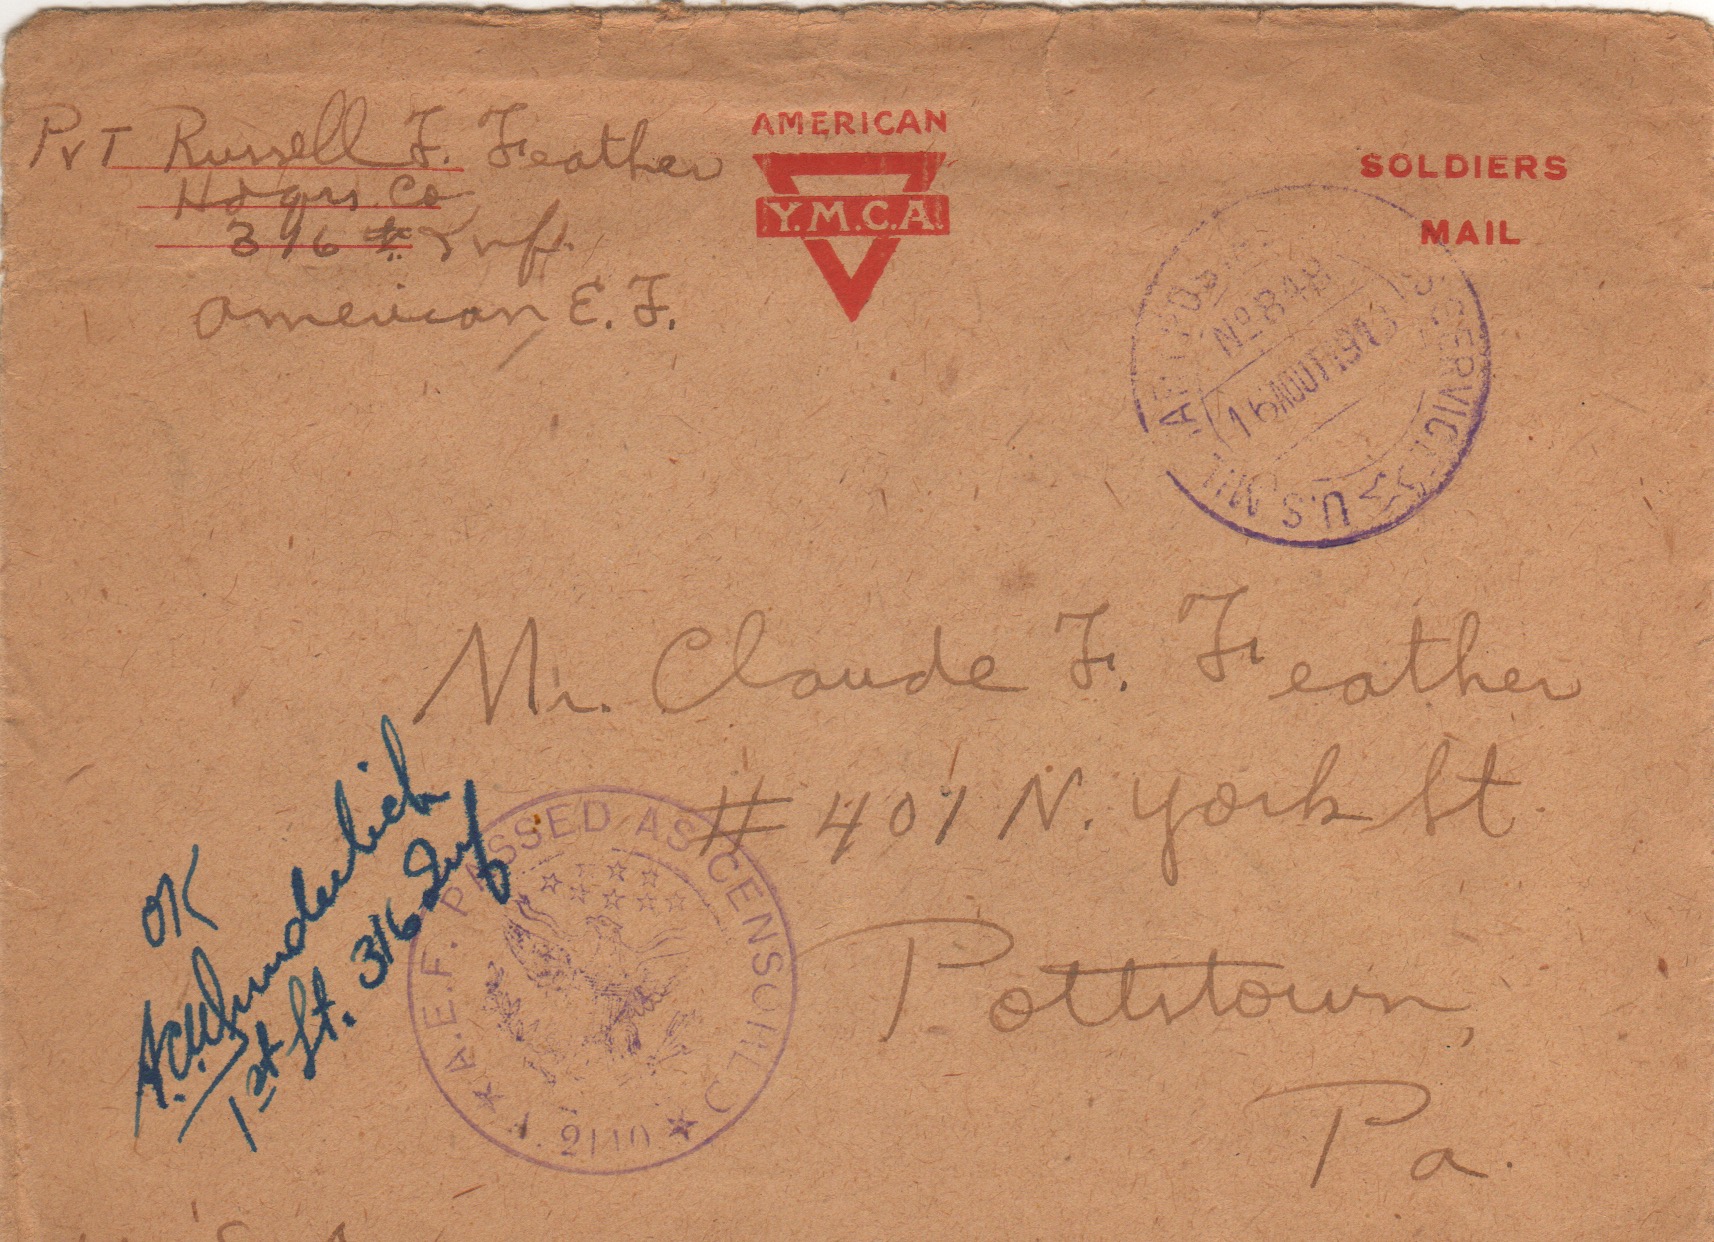 Pvt Russell F. Feather
Hdqrs. Co
316 Inf.
American E. F.
AMERICAN
Y.M.C.A.
SOLDIERS
MAIL
U.S.
No 848
16 AOUT 1918
SERVICE
Mr. Claude F. Feather
# 401 N. York St.
Pottstown,
Pa.
OK
1st Lt. 316 Inf
A.E.F. PASSED AS CENSORED